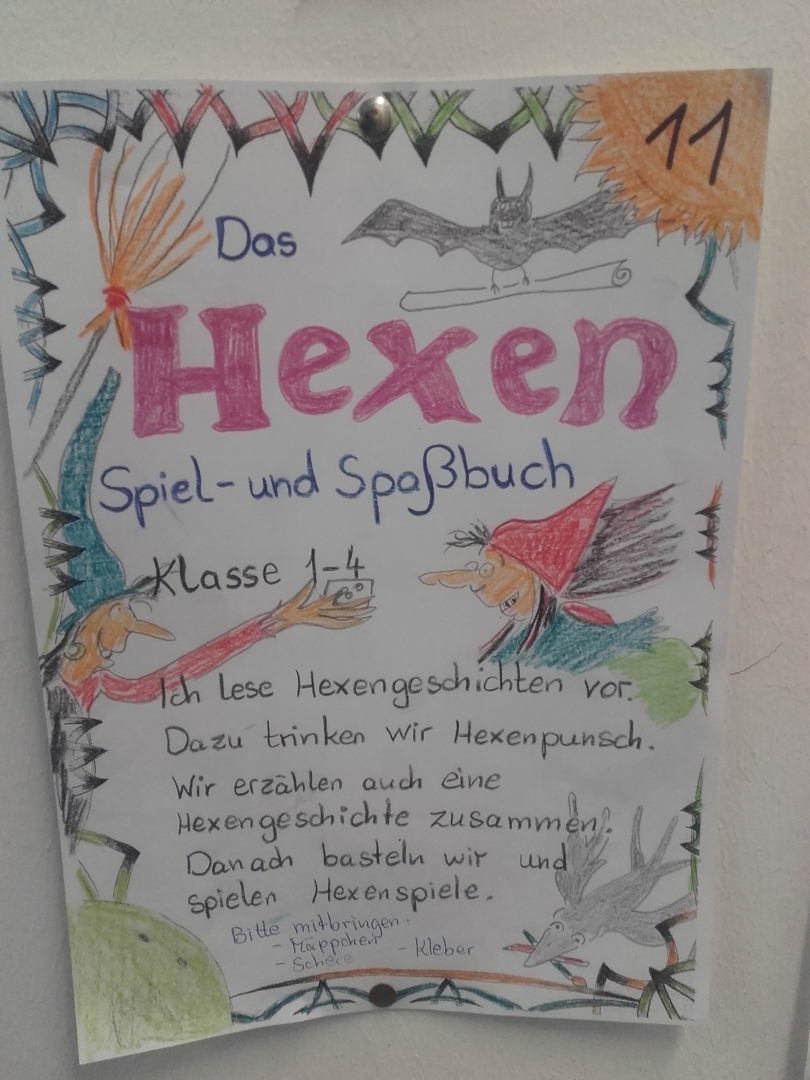 11
Das
Hexen
Spiel- und Spaßbuch
Klasse 1-4
Ich lese Hexengeschichten vor.
Dazu trinken wir Hexenpunsch.
Wir erzählen auch eine
Hexengeschichte zusammen.
Danach basteln wir und
spielen Hexenspiele.
Bitte mitbringen:
- Mäppchen - Kleber
- Schere